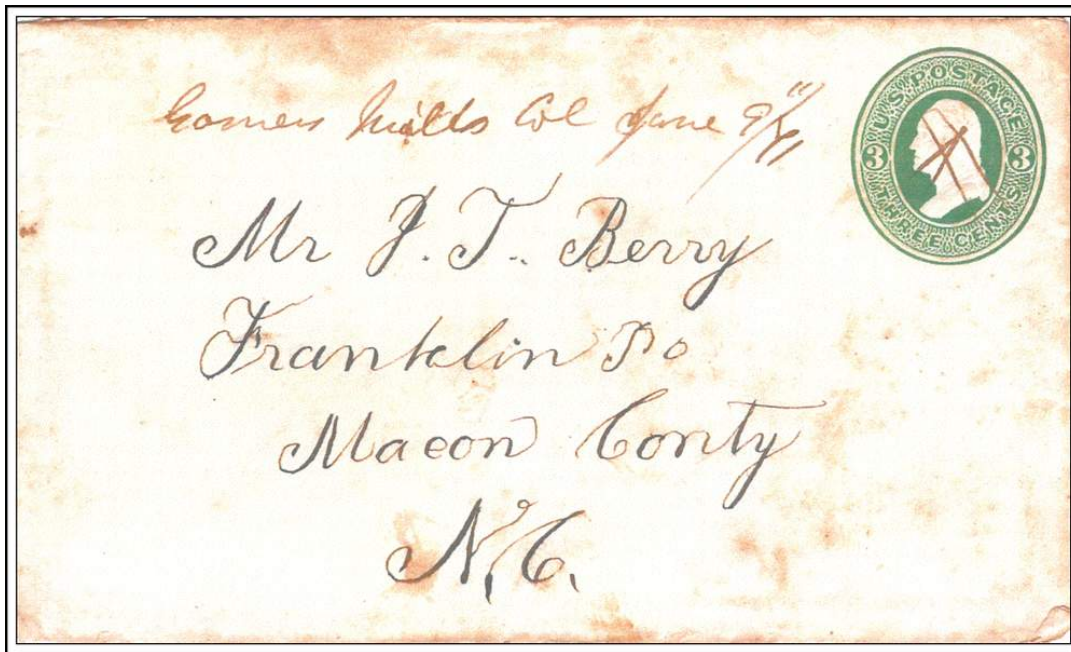 Gomers Mills Col June 9"/71
U.S. POSTAGE
3 3
THREE CENTS
Mr J. T. Berry
Franklin Po
Macon Conty
N. C.